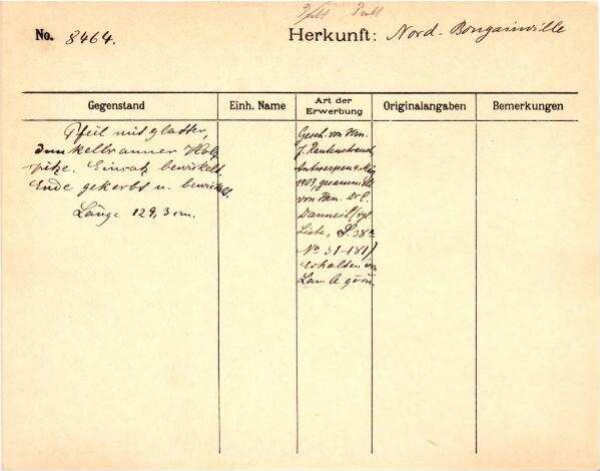 No. 8464.
Herkunft: Nord-Bougainville
Gegenstand
Einh. Name
Art der Erwerbung
Originalangaben
Bemerkungen
Pfeil mit glatter,
dunkelbrauner Holz
spitze. Einsatz bewickelt
Ende gekerbt u. bewickelt.
Länge 129,3 cm.
Gesch. von Hrn.
J. Rautenstrauch
Antwerpen
1903, gesammelt
von Hrn. Dr. C.
Danneil (vgl
Liste, S. 382
No 31-181)
erhalten